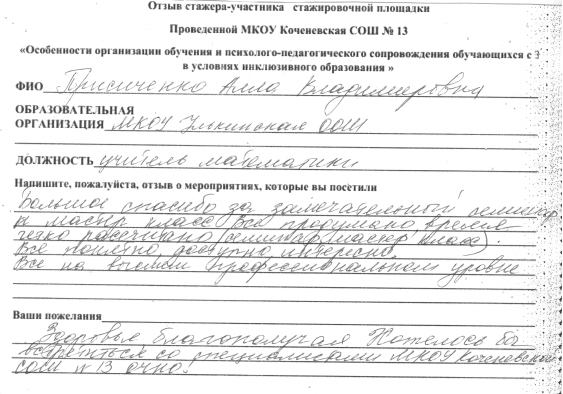 Отзыв стажера-участника стажировочной площадки
Проведенной МКОУ Коченевская СОШ № 13
«Особенности организации обучения и психолого-педагогического сопровождения обучающихся с З
в условиях инклюзивного образования »
ФИО Присиченко Алла Владимировна
ОБРАЗОВАТЕЛЬНАЯ
ОРГАНИЗАЦИЯ МКОУ ООШ
ДОЛЖНОСТЬ учитель математики
Напишите, пожалуйста, отзыв о мероприятиях, которые вы посетили
Большое спасибо за замечательной семинар
и мастер класс Все продумано, время
четко рассчитано (семинар, мастер класс).
Все понятно доступно интересно
Все на высоком профессиональном уровне
Ваши пожелания
Здоровье благополучая Хотелось бы
встретиться со специалисами МКОУ Коченевской
СОШ № 13 очно.